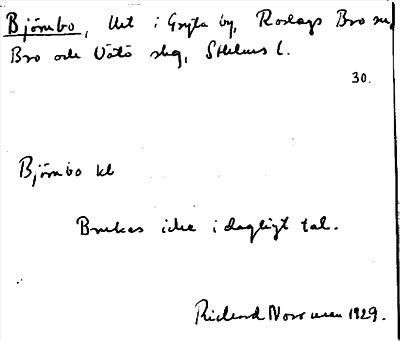 Björnbo, lht i Gryta by, Roslags Bro sn,
Bro och Vätö skg, Sthlms l.
30.
Björnbo kl
Brukas icke i dagligt tal.
Richard Norrman 1929.